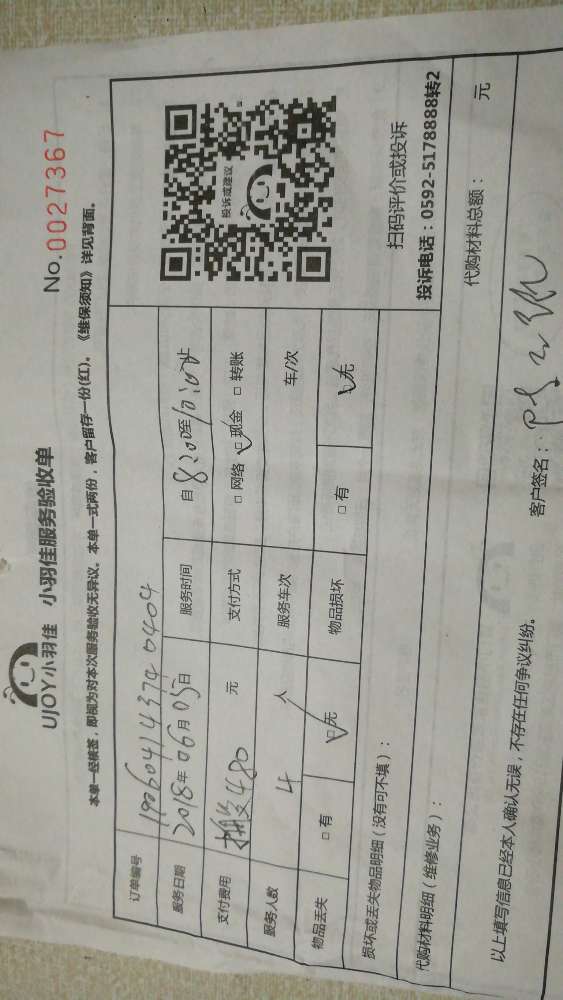 UJOY小羽佳 小羽佳服务验收单
No.0027367
本单一经核签，即视为对本次服务验收无异议。本单一式两份，客户留存一份(红)。《维保须知》详见背面。
订单编号 180604143740404
服务日期 2018年06月05日 服务时间 自 8:00至10:00止
支付费用 480 元 支付方式 □ 网络 □ 现金 □ 转账
服务人数 4 人 服务车次 车/次
物品丢失 □ 有 □ 无 物品损坏 □ 有 □ 无
投诉或建议
扫码评价或投诉
投诉电话：0592-5178888转2
损坏或丢失物品明细（没有可不填）：
代购材料明细（维修业务）： 代购材料总额： 元
以上填写信息已经本人确认无误，不存在任何争议纠纷。 客户签名：